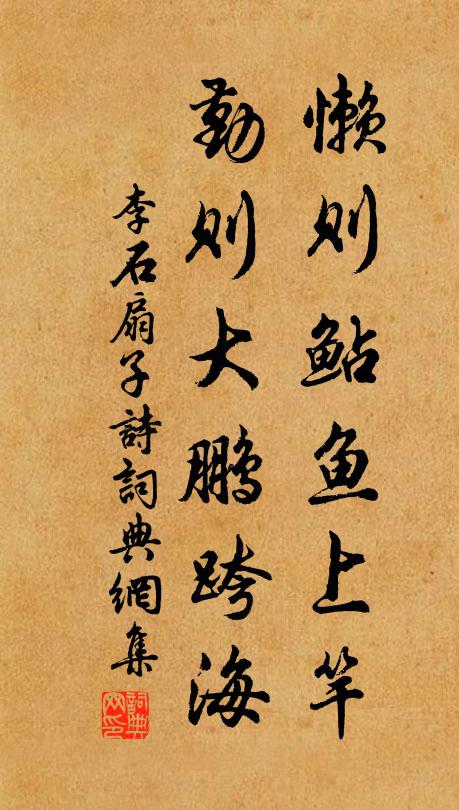 懒则鲇鱼上竿
勤则大鹏跨海
李石扇子詩詞典網集
詞典
网印